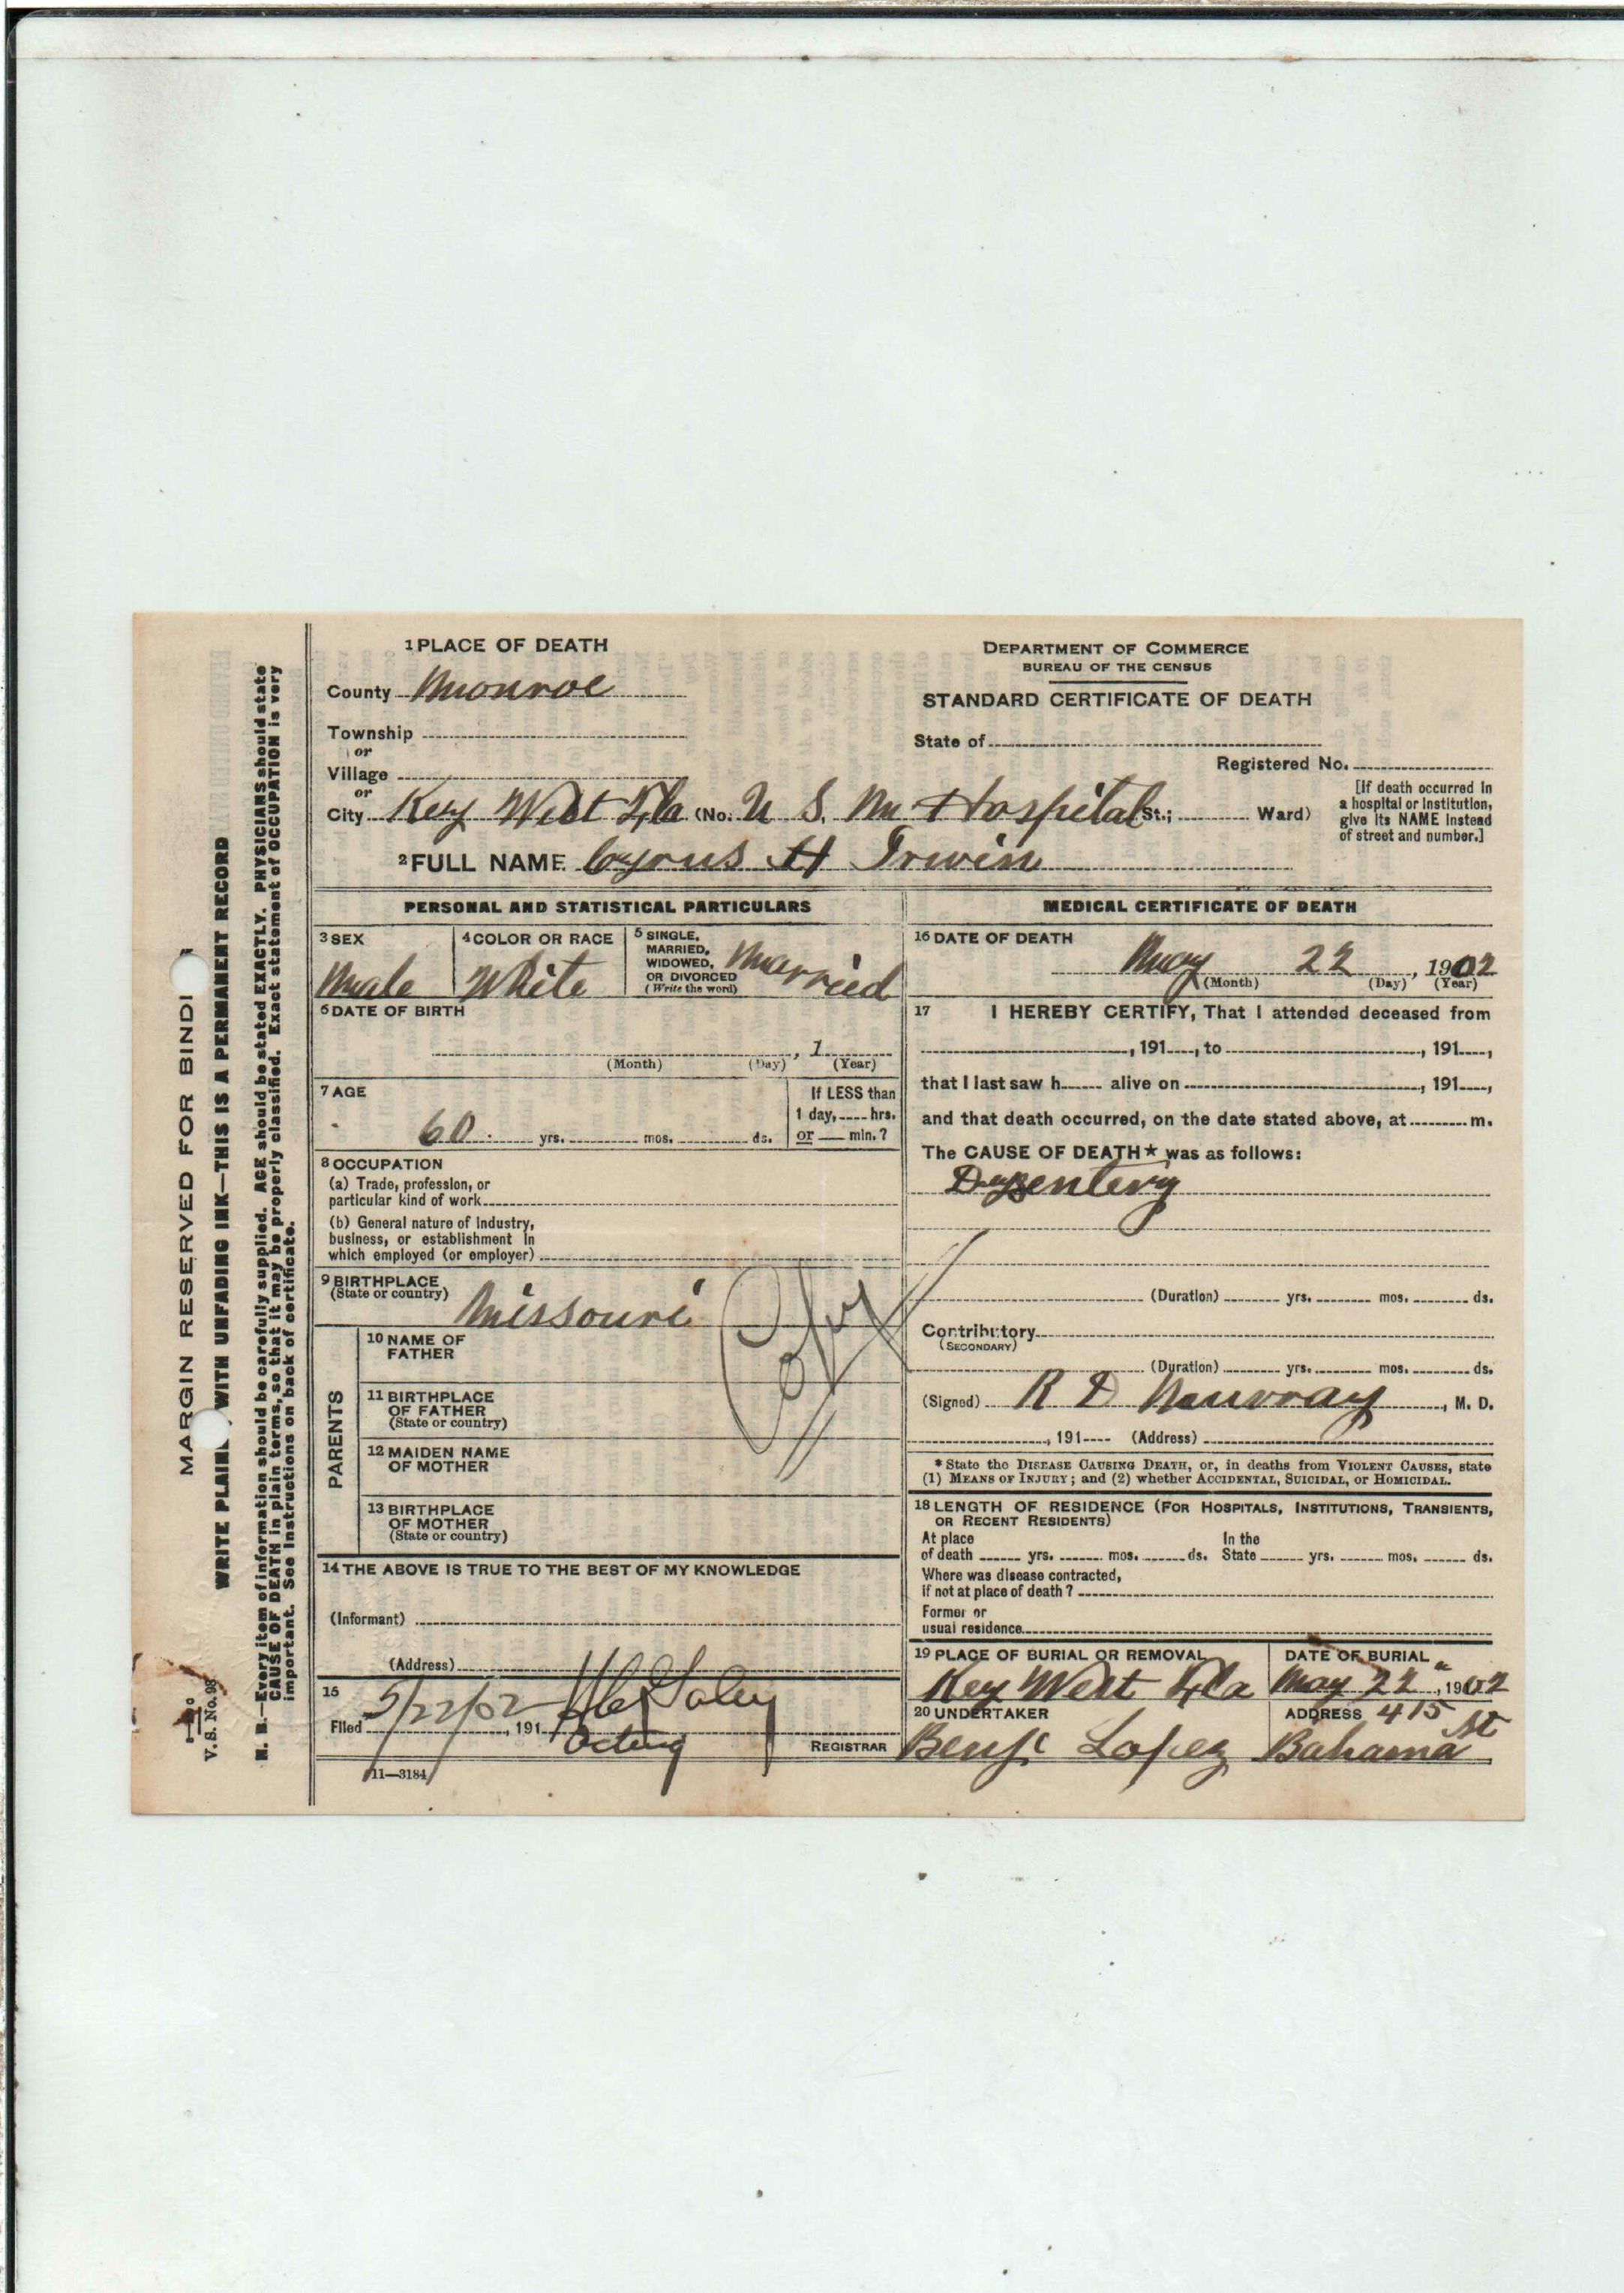 1 PLACE OF DEATH
County Monroe
Township
or
Village
or
City Key West Fla (No. U S. M Hospital St.; Ward)
2 FULL NAME Cyrus H Irwin
DEPARTMENT OF COMMERCE
BUREAU OF THE CENSUS
STANDARD CERTIFICATE OF DEATH
State of
Registered No.
[If death occurred in
a hospital or institution,
give its NAME instead
of street and number.]
PERSONAL AND STATISTICAL PARTICULARS
3 SEX
Male
4 COLOR OR RACE
White
5 SINGLE,
MARRIED,
WIDOWED,
OR DIVORCED
(Write the word)
Married
6 DATE OF BIRTH
, 1
(Month) (Day) (Year)
7 AGE
60 yrs. mos. ds.
If LESS than
1 day, hrs.
or min.?
8 OCCUPATION
(a) Trade, profession, or
particular kind of work
(b) General nature of industry,
business, or establishment in
which employed (or employer)
9 BIRTHPLACE
(State or country)
Missouri
Copy
PARENTS
10 NAME OF
FATHER
11 BIRTHPLACE
OF FATHER
(State or country)
12 MAIDEN NAME
OF MOTHER
13 BIRTHPLACE
OF MOTHER
(State or country)
14 THE ABOVE IS TRUE TO THE BEST OF MY KNOWLEDGE
(Informant)
(Address)
15
Filed 5/22/02, 191
Acting
REGISTRAR
11—3184
MEDICAL CERTIFICATE OF DEATH
16 DATE OF DEATH
May 22, 1902
(Month) (Day) (Year)
17 I HEREBY CERTIFY, That I attended deceased from
, 191, to , 191,
that I last saw h alive on , 191,
and that death occurred, on the date stated above, at m.
The CAUSE OF DEATH* was as follows:
Dysentery
(Duration) yrs. mos. ds.
Contributory
(SECONDARY)
(Duration) yrs. mos. ds.
(Signed) R D Murray, M. D.
, 191 (Address)
* State the DISEASE CAUSING DEATH, or, in deaths from VIOLENT CAUSES, state
(1) MEANS OF INJURY; and (2) whether ACCIDENTAL, SUICIDAL, or HOMICIDAL.
18 LENGTH OF RESIDENCE (FOR HOSPITALS, INSTITUTIONS, TRANSIENTS,
OR RECENT RESIDENTS)
At place
of death yrs. mos. ds.
In the
State yrs. mos. ds.
Where was disease contracted,
if not at place of death?
Former or
usual residence
19 PLACE OF BURIAL OR REMOVAL
Key West Fla
DATE OF BURIAL
May 22", 1902
20 UNDERTAKER
Benj Lopez
ADDRESS 415
Bahama St
MARGIN RESERVED FOR BINDI
WRITE PLAIN WITH UNFADING INK—THIS IS A PERMANENT RECORD
N. B.—Every item of information should be carefully supplied. AGE should be stated EXACTLY. PHYSICIANS should state
CAUSE OF DEATH in plain terms, so that it may be properly classified. Exact statement of OCCUPATION is very
important. See instructions on back of certificate.
V. S. No. 98